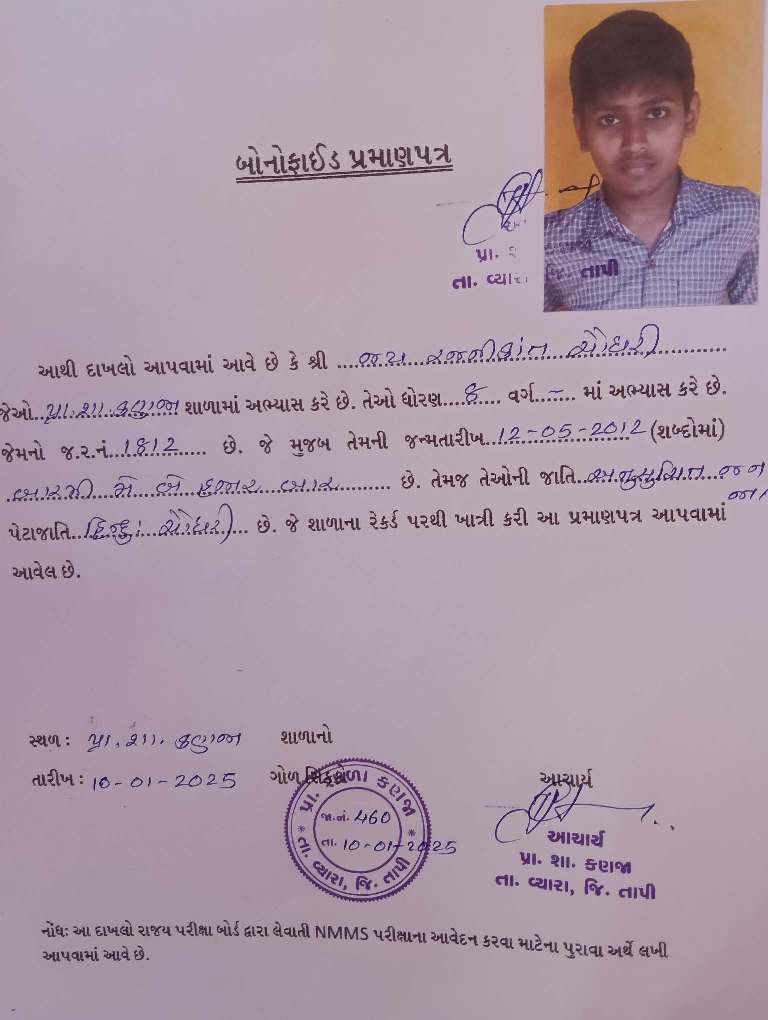 બોનોફાઈડ પ્રમાણપત્ર
પ્રા. શ
તા. વ્યારા જિ. તાપી
આથી દાખલો આપવામાં આવે છે કે શ્રી ....જય રજનીકાંત ચૌધરી....
જેઓ..પ્રા.શા.કણજા શાળામાં અભ્યાસ કરે છે. તેઓ ધોરણ....૮.... વર્ગ...–... માં અભ્યાસ કરે છે.
જેમનો જ.ર.નં.1812...... છે. જે મુજબ તેમની જન્મતારીખ..12-05-2012 (શબ્દોમાં)
બારમી મે બે હજાર બાર.......... છે. તેમજ તેઓની જાતિ..અનુસુચિત જન
જા
પેટાજાતિ..હિન્દુ ચૌધરી... છે. જે શાળાના રેકર્ડ પરથી ખાત્રી કરી આ પ્રમાણપત્ર આપવામાં
આવેલ છે.
સ્થળ: પ્રા.શા.કણજા શાળાનો
તારીખ: 10-01-2025 ગોળ સિક્કો આચાર્ય
પ્રા. શાળા કણજા
જા.નં. 460
તા. 10-01-2025
તા. વ્યારા, જિ. તાપી
આચાર્ય
પ્રા. શા. કણજા
તા. વ્યારા, જિ. તાપી
નોંધ: આ દાખલો રાજય પરીક્ષા બોર્ડ દ્વારા લેવાતી NMMS પરીક્ષાના આવેદન કરવા માટેના પુરાવા અર્થે લખી
આપવામાં આવે છે.